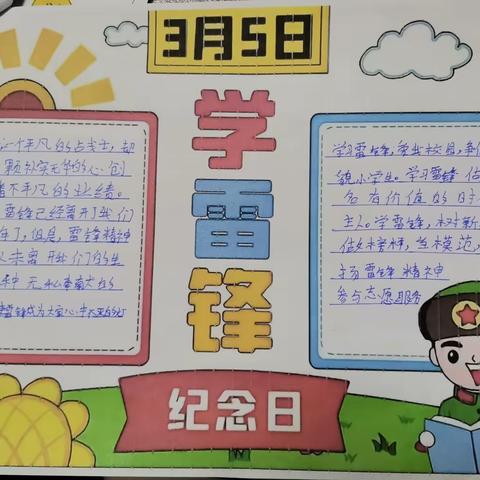 3月5日
学
雷
锋
纪念日
一个平凡的战士,却
颗朴实无华的心,创
着不平凡的业绩。
雷锋已经离开了我们
年了,但是,雷锋精神
从未离开我们的生
种无私奉献的
学习雷锋,爱我校园,争做
貌小学生。学习雷锋
名有价值的时
主人。学雷锋,树新
做榜样,当模范,
扬雷锋精神
参与志愿服务